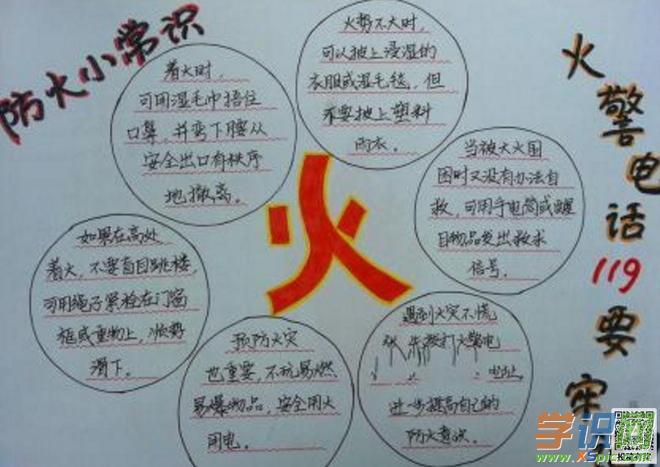 防火小常识
着火时，
可用湿毛巾捂住
口鼻，并弯下腰从
安全出口有秩序
地撤离。
火势不大时，
可以披上浸湿的
衣服或湿毛毯，但
不要披上塑料
雨衣。
火警电话119要牢
当被大火围
困时又没有办法自
救，可用手电筒或醒
目物品发出救求
信号。
火
如果在高处
着火，不要盲目跳楼，
可用绳子紧栓在门窗
框或重物上，顺势
滑下。
预防火灾
也重要，不玩易燃
易爆物品，安全用火
用电。
遇到火灾不慌
拨打火警电
进一步提高自己的
防火意识。
学识网